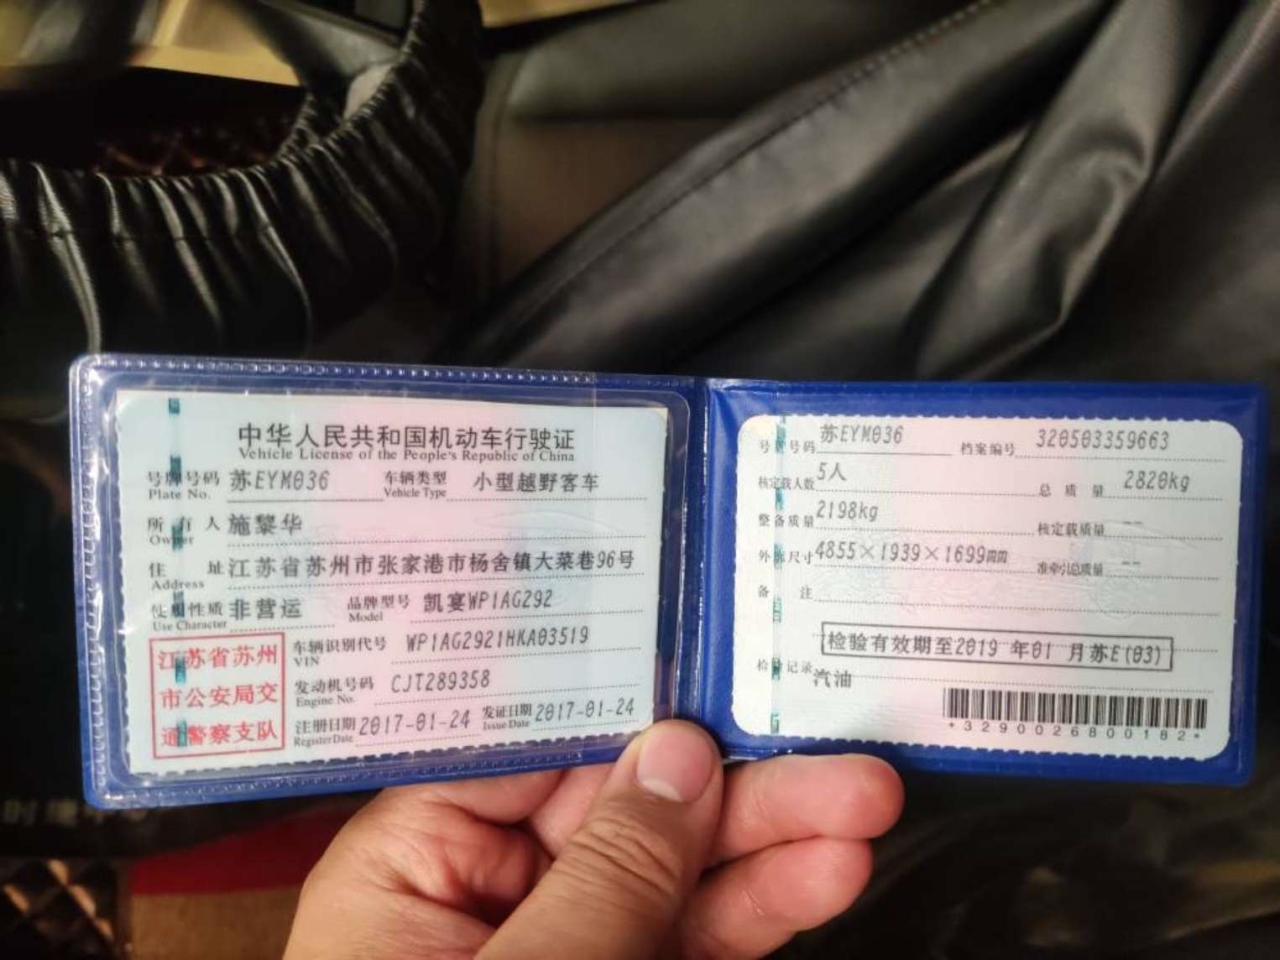 中华人民共和国机动车行驶证
Vehicle License of the People's Republic of China
号牌号码 苏EYM036 车辆类型 小型越野客车
Plate No. Vehicle Type
所有人 施黎华
Owner
住址 江苏省苏州市张家港市杨舍镇大菜巷96号
Address
使用性质 非营运 品牌型号 凯宴WP1AG292
Use Character Model
江苏省苏州
市公安局交
通警察支队
车辆识别代号 WP1AG2921HKA03519
VIN
发动机号码 CJT289358
Engine No.
注册日期 2017-01-24 发证日期 2017-01-24
Register Date Issue Date
号牌号码 苏EYM036 档案编号 320503359663
核定载人数 5人 总质量 2820kg
整备质量 2198kg 核定载质量 --
外廓尺寸 4855×1939×1699mm 准牵引总质量 --
备注
检验有效期至2019 年01 月苏E(03)
检验记录
汽油
*3290026800182*